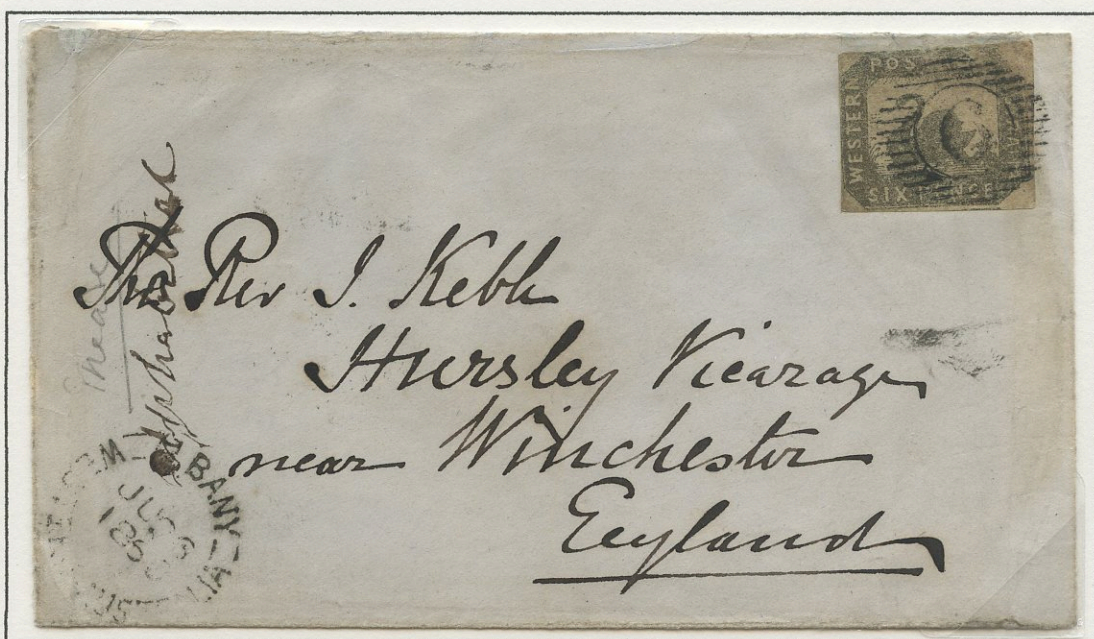 WESTERN
POS
SIX PENCE
The Rev J. Keble
Hursley Vicarage
near Winchester
England
ALBANY
WESTERN AUSTRALIA